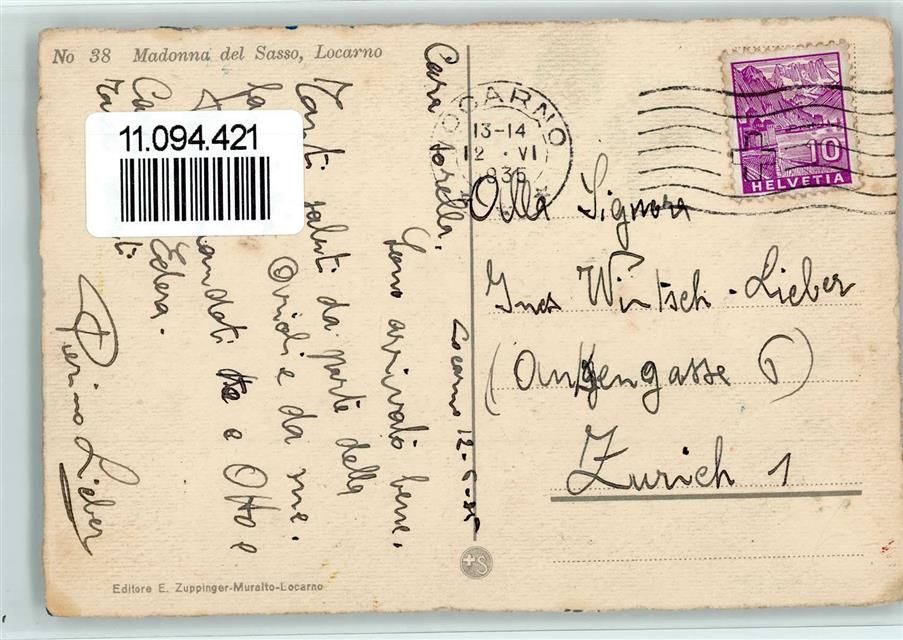 No 38 Madonna del Sasso, Locarno
11.094.421
LOCARNO
13-14
12. VI
935
10
HELVETIA
Locarno 12-6-35
Cara sorella.
Sono arrivato bene.
Tanti saluti da parte della
Ovidi e da me.
andati te e Otto e
Edera.
Pierino Lieber
Alla Signora
Ines Wirtsch-Lieber
gengasse 6)
Zurich 1
+S
Editore E. Zuppinger-Muralto-Locarno